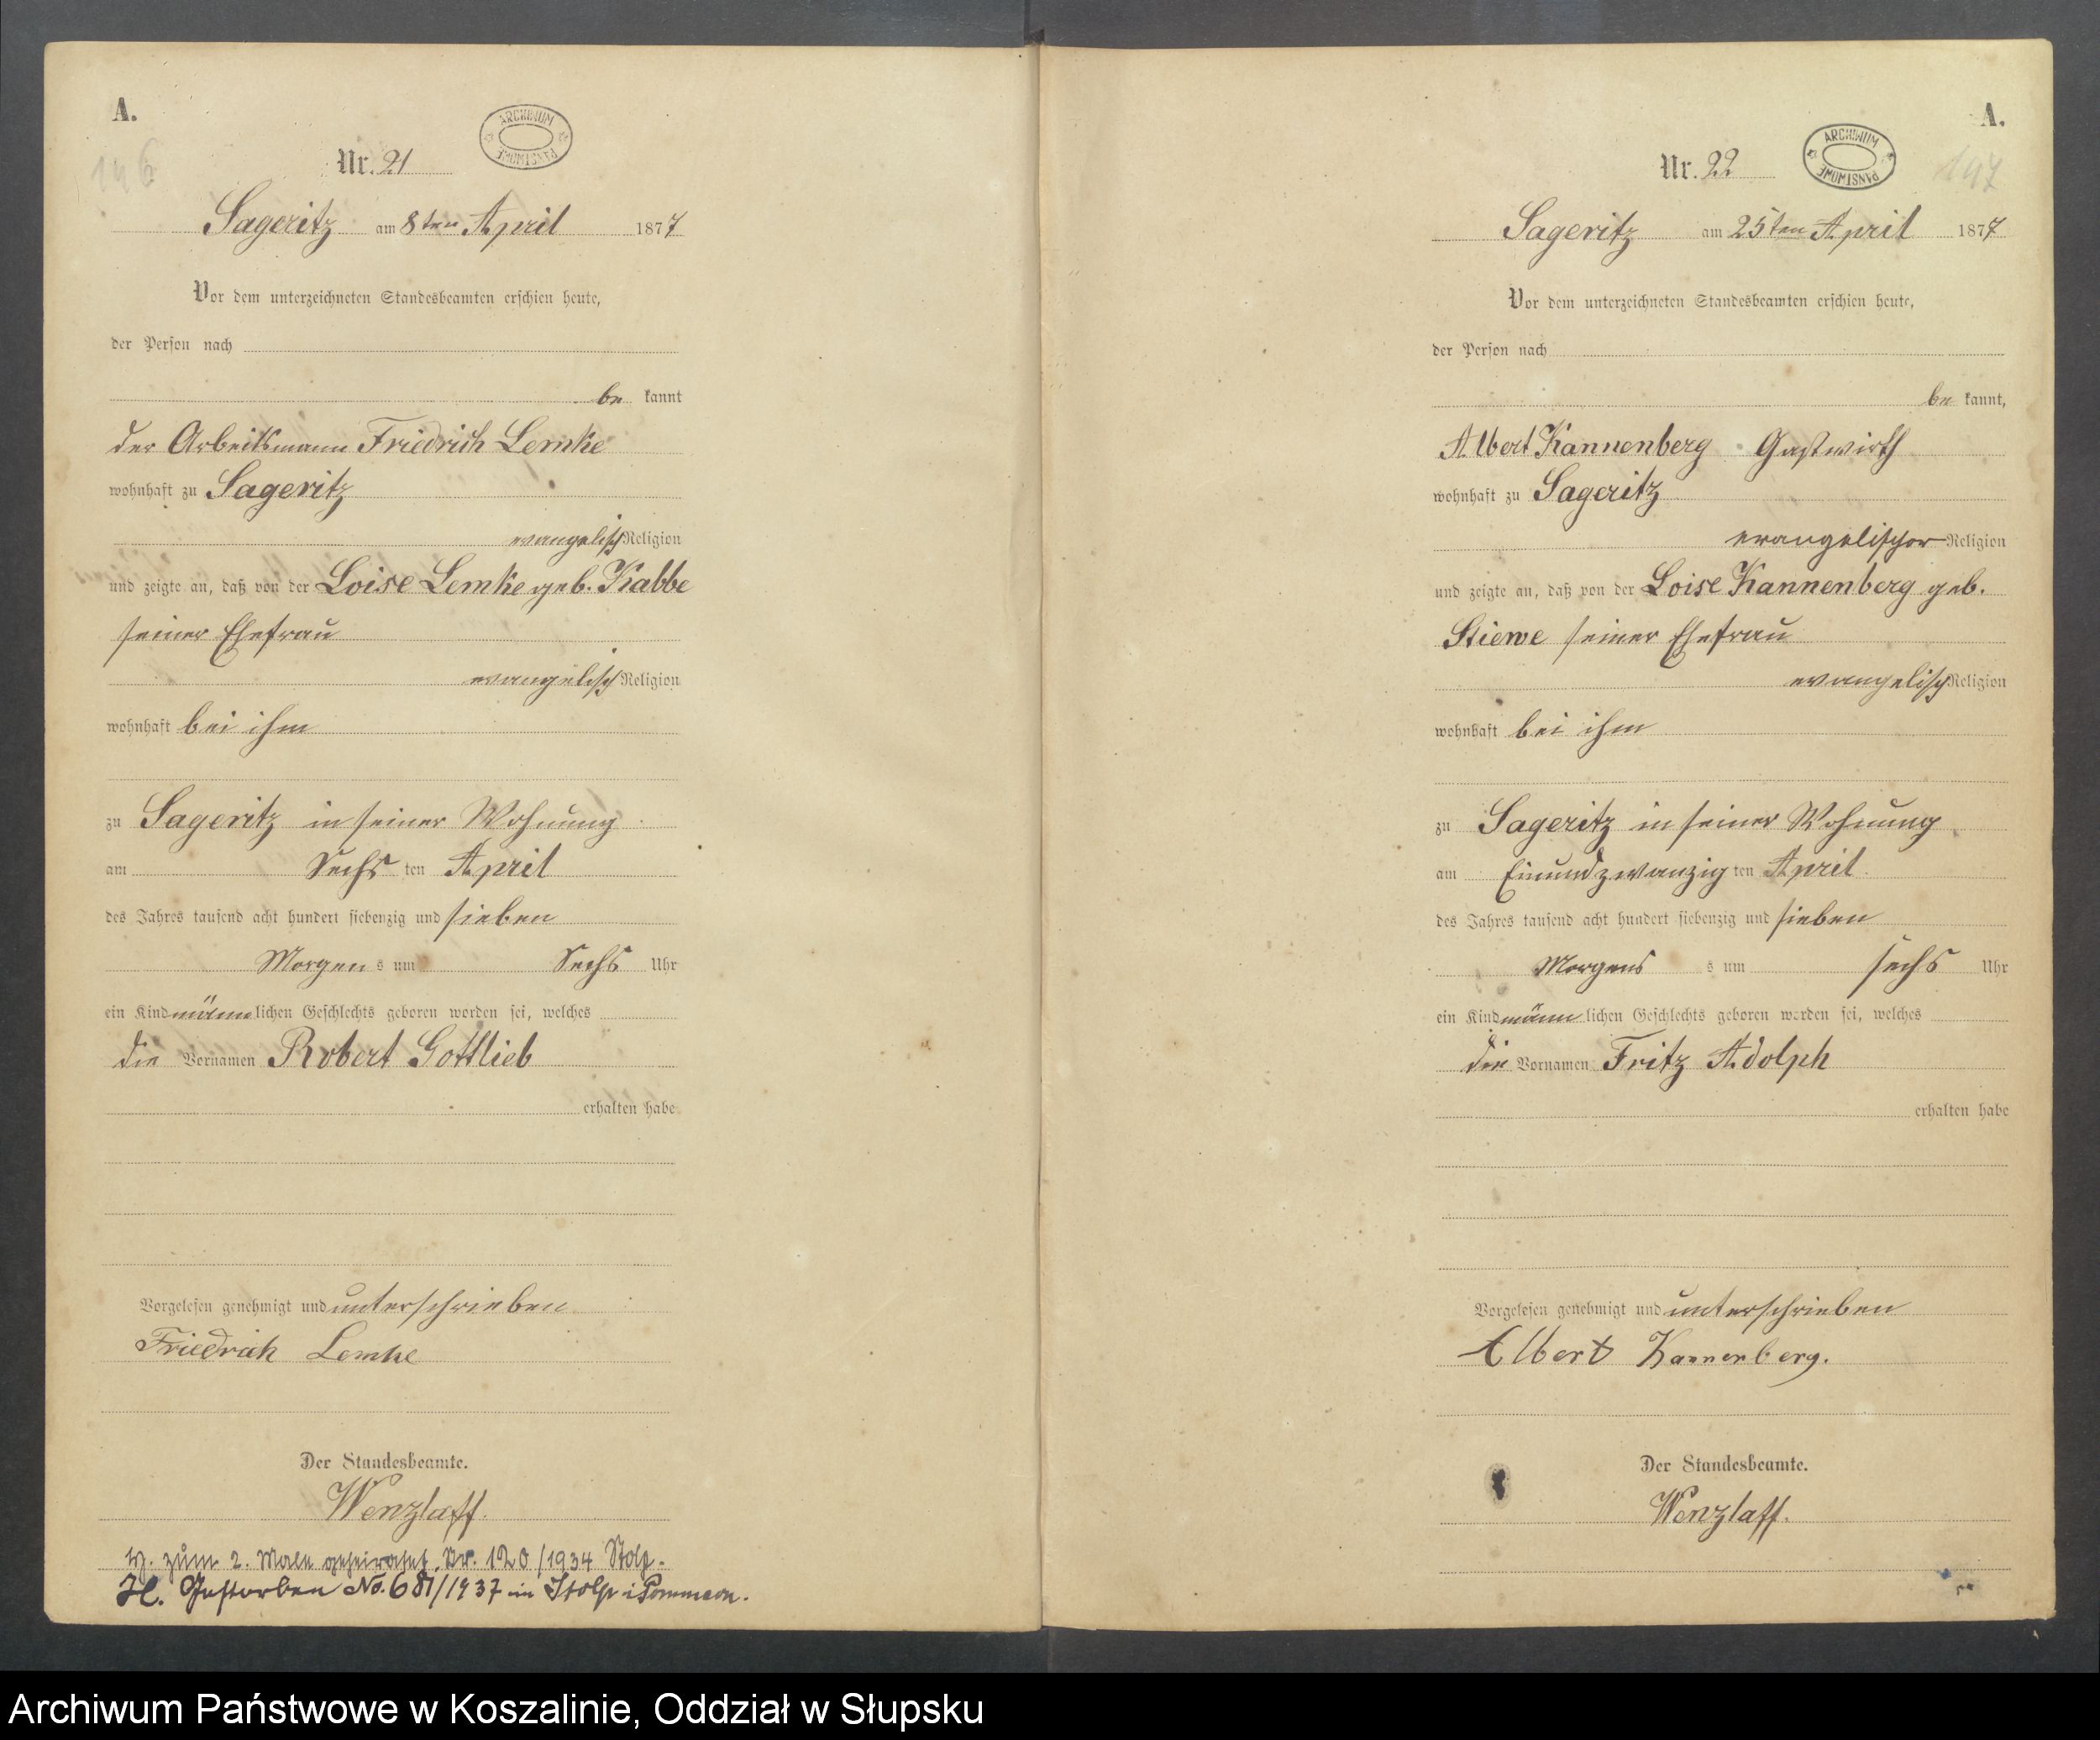 A.
146
ARCHIWUM PAŃSTWOWE
Nr. 21
Sageritz am 8ten April 1877
Vor dem unterzeichneten Standesbeamten erschien heute,
der Person nach
be kannt
der Arbeitsmann Friedrich Lemke
wohnhaft zu Sageritz
evangelisch Religion
und zeigte an, daß von der Loise Lemke geb. Kabbe
seiner Ehefrau
evangelisch Religion
wohnhaft bei ihm
zu Sageritz in seiner Wohnung
am Sechs ten April
des Jahres tausend acht hundert siebenzig und sieben
Morgen s um Sechs Uhr
ein Kind männlichen Geschlechts geboren worden sei, welches
die Vornamen Robert Gottlieb
erhalten habe
Vorgelesen genehmigt und unterschrieben
Friedrich Lemke
Der Standesbeamte.
Wenzlaff.
zum 2. Male geheiratet Nr. 120/1934 Stolp.
H. Gestorben No. 681/1937 in Stolp i Pommern.
A.
147
ARCHIWUM PAŃSTWOWE
Nr. 22
Sageritz am 25ten April 1877
Vor dem unterzeichneten Standesbeamten erschien heute,
der Person nach
be kannt,
Albert Kannenberg Gastwirth
wohnhaft zu Sageritz
evangelischer Religion
und zeigte an, daß von der Loise Kannenberg geb.
Stiewe seiner Ehefrau
evangelisch Religion
wohnhaft bei ihm
zu Sageritz in seiner Wohnung
am Einundzwanzig ten April
des Jahres tausend acht hundert siebenzig und sieben
Morgens s um sechs Uhr
ein Kind männlichen Geschlechts geboren worden sei, welches
die Vornamen Fritz Adolph
erhalten habe
Vorgelesen genehmigt und unterschrieben
Albert Kannenberg.
Der Standesbeamte.
Wenzlaff.
Archiwum Państwowe w Koszalinie, Oddział w Słupsku